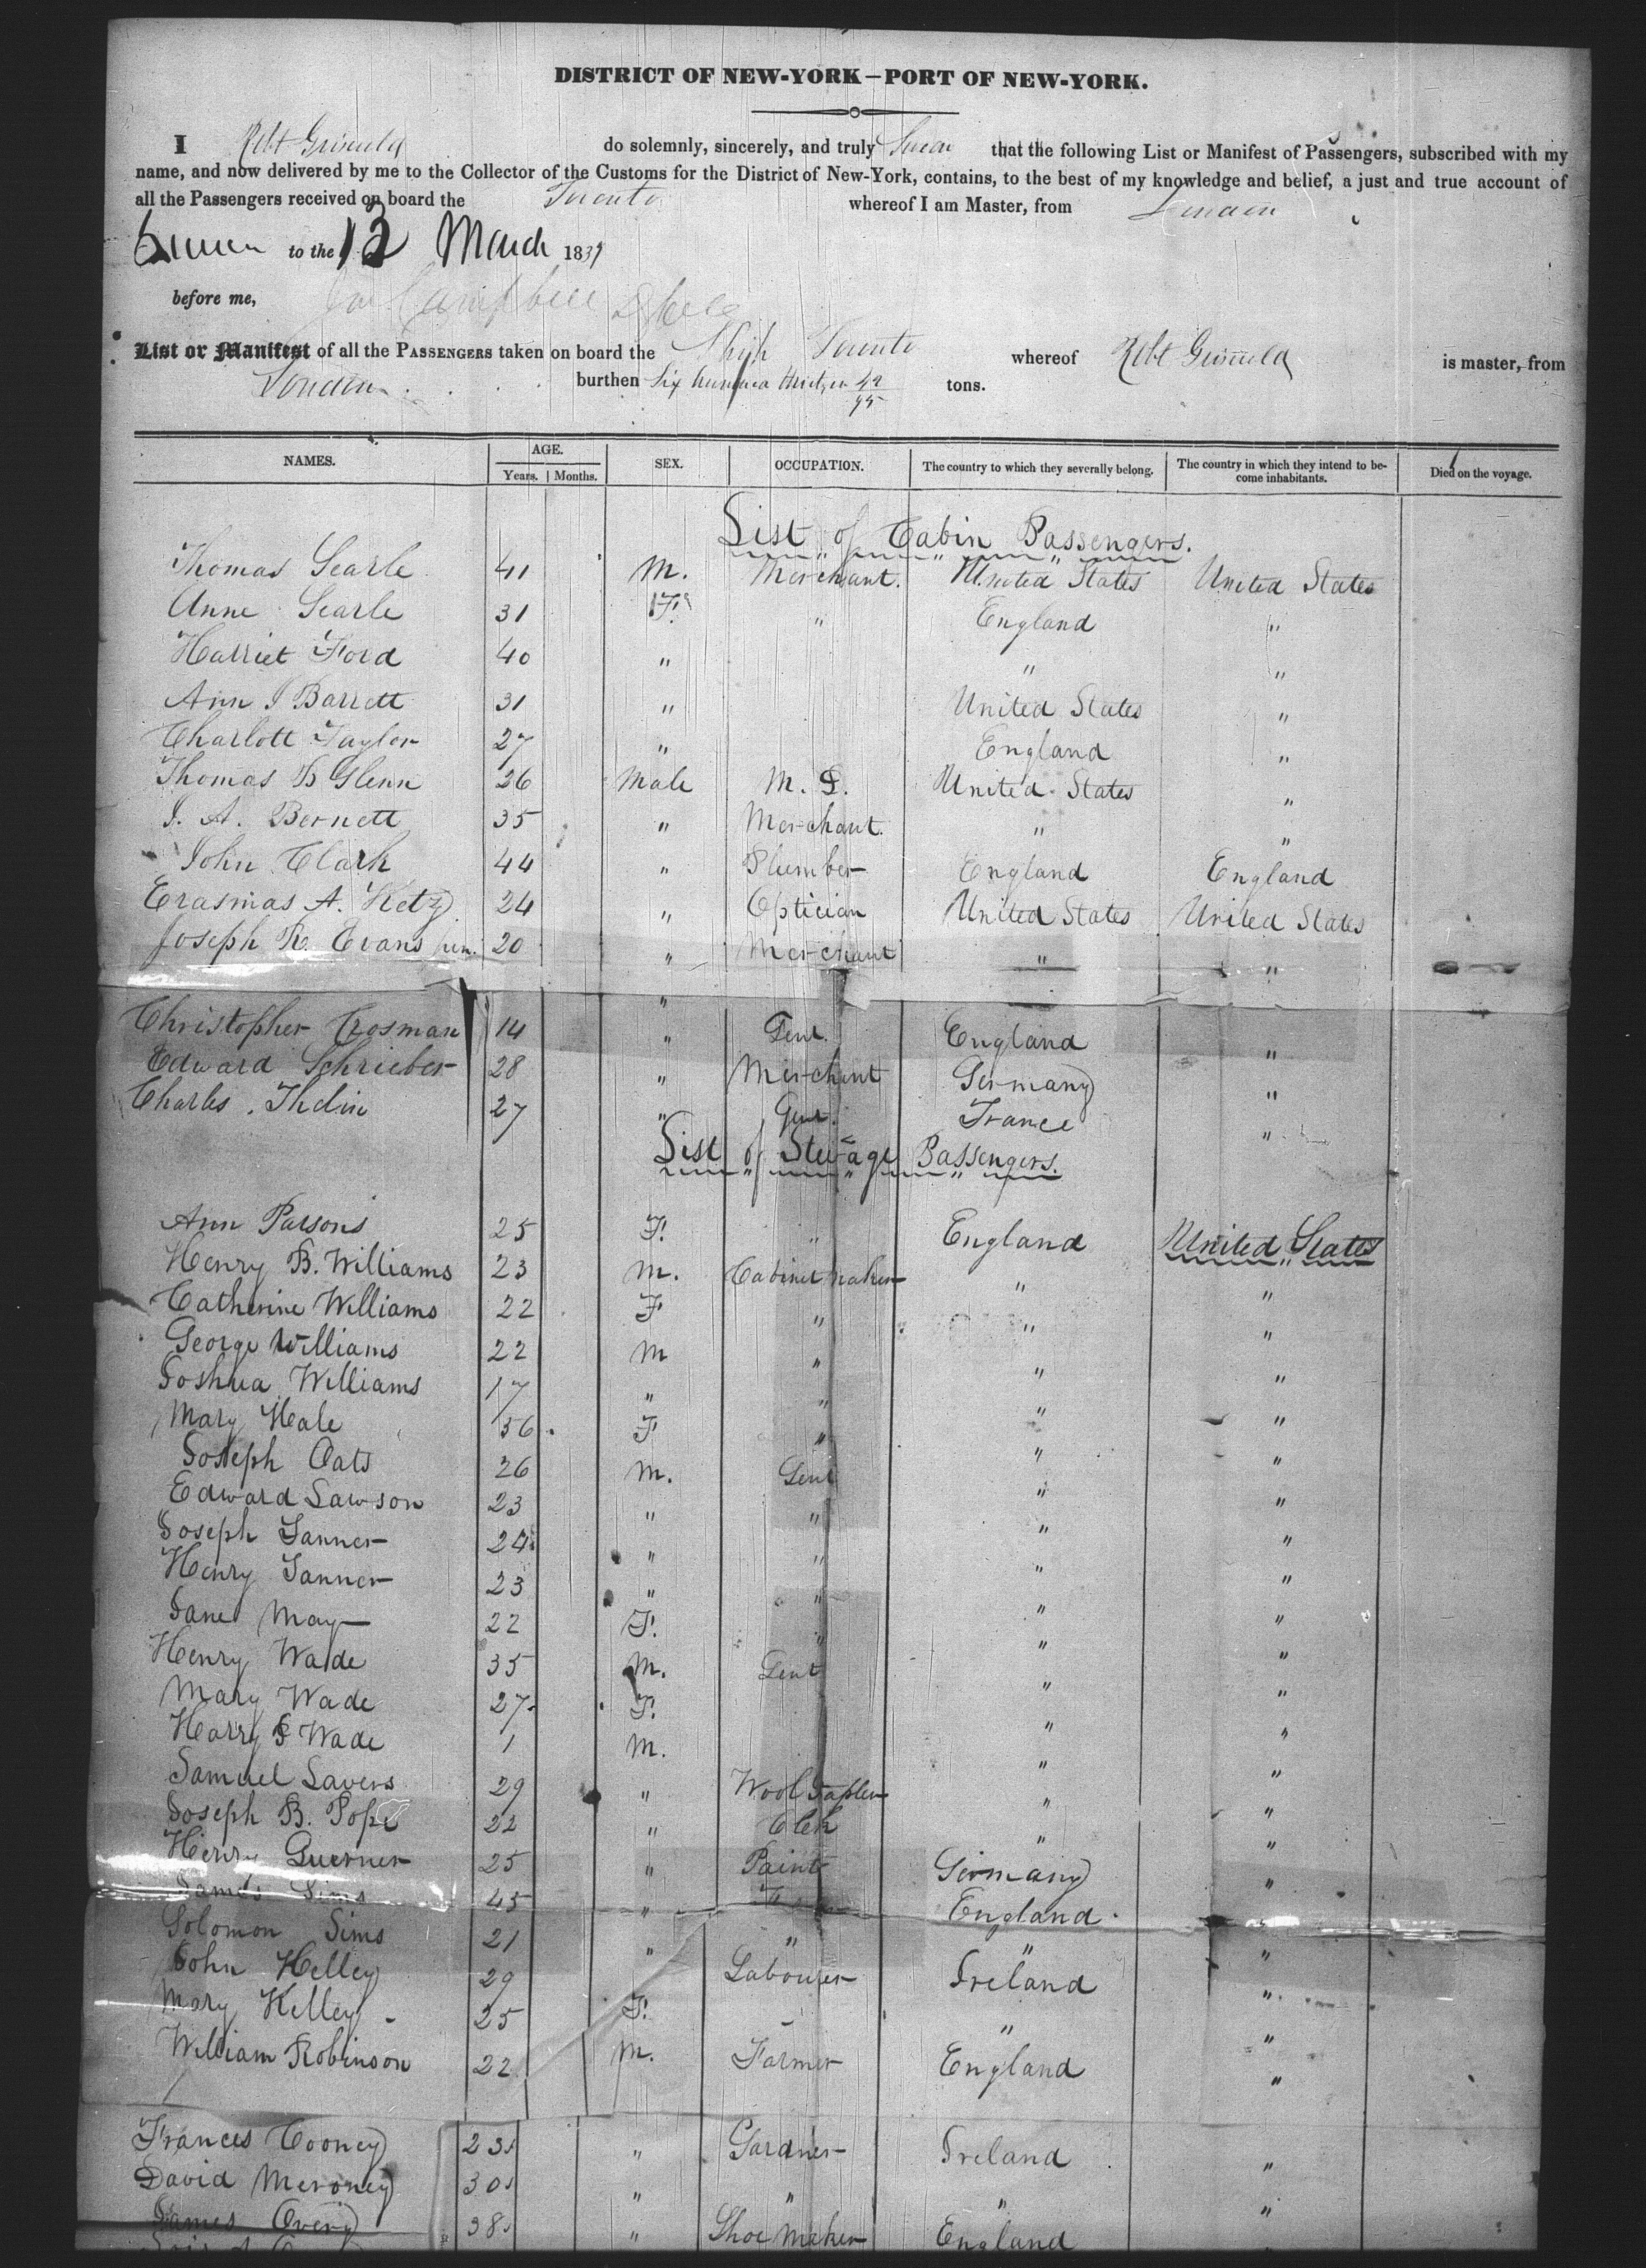 DISTRICT OF NEW-YORK—PORT OF NEW-YORK.
I Robt Griswold do solemnly, sincerely, and truly Swear that the following List or Manifest of Passengers, subscribed with my
name, and now delivered by me to the Collector of the Customs for the District of New-York, contains, to the best of my knowledge and belief, a just and true account of
all the Passengers received on board the Toronto whereof I am Master, from London
Sworn to the 12 March 1839
before me, Campbell
List or Manifest of all the PASSENGERS taken on board the Ship Toronto whereof Robt Griswold is master, from
London burthen Six hundred thirty 42/95 tons.
NAMES. AGE. Years. Months. SEX. OCCUPATION. The country to which they severally belong. The country in which they intend to be-come inhabitants. Died on the voyage.
List of Cabin Passengers.
Thomas Searle 41 M. Merchant. United States United States
Anne Searle 31 F. " England "
Harriet Ford 40 " " "
Ann J Barrett 31 " United States "
Charlott Taylor 27 " England "
Thomas B Glenn 26 Male M. D. United States "
J. A. Bernett 35 " Merchant. " "
John Clark 44 " Plumber England England
Erasmas A. Ketz 24 " Optician United States United States
Joseph R. Evans jun. 20 " Merchant " "
"
Christopher Crosman 14 " Gent. England "
Edward Schrieber 28 " Merchant Germany "
Charles Thdin 27 " Gent. France "
List of Steerage Passengers.
Ann Parsons 25 F. " England United States
Henry B. Williams 23 M. Cabinet maker " "
Catherine Williams 22 F " " "
George Williams 22 M " " "
Joshua Williams 17 " " " "
Mary Heale 36 F " " "
Joseph Oats 26 M. Gent " "
Edward Lawson 23 " " " "
Joseph Tanner 24 " " " "
Henry Tanner 23 " " " "
Jane May 22 F. " " "
Henry Wade 35 M. Gent " "
Mary Wade 27 F. " "
Harry J Wade 1 M. " "
Samuel Lavers 29 " Wool Stapler " "
Joseph B. Pope 22 " Clerk " "
Henry Guerner 25 " Painter Germany "
James Sims 45 " England "
Solomon Sims 21 " " " "
John Kelley 29 Labourer Ireland "
Mary Kelley 25 F. " "
William Robinson 22 M. Farmer England "
Frances Cooney 23 " Gardner Ireland "
David Meroney 30 " " " "
James Overy 38 " Shoe Maker England